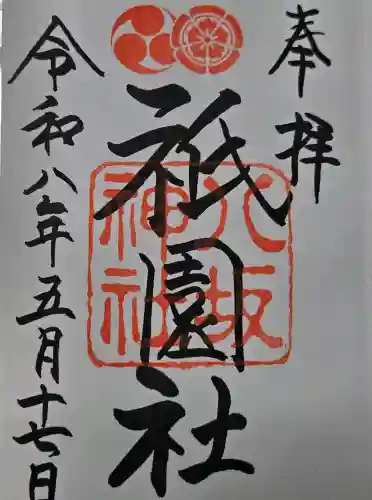 奉拝
祇園社
八坂神社
令和八年五月十七日